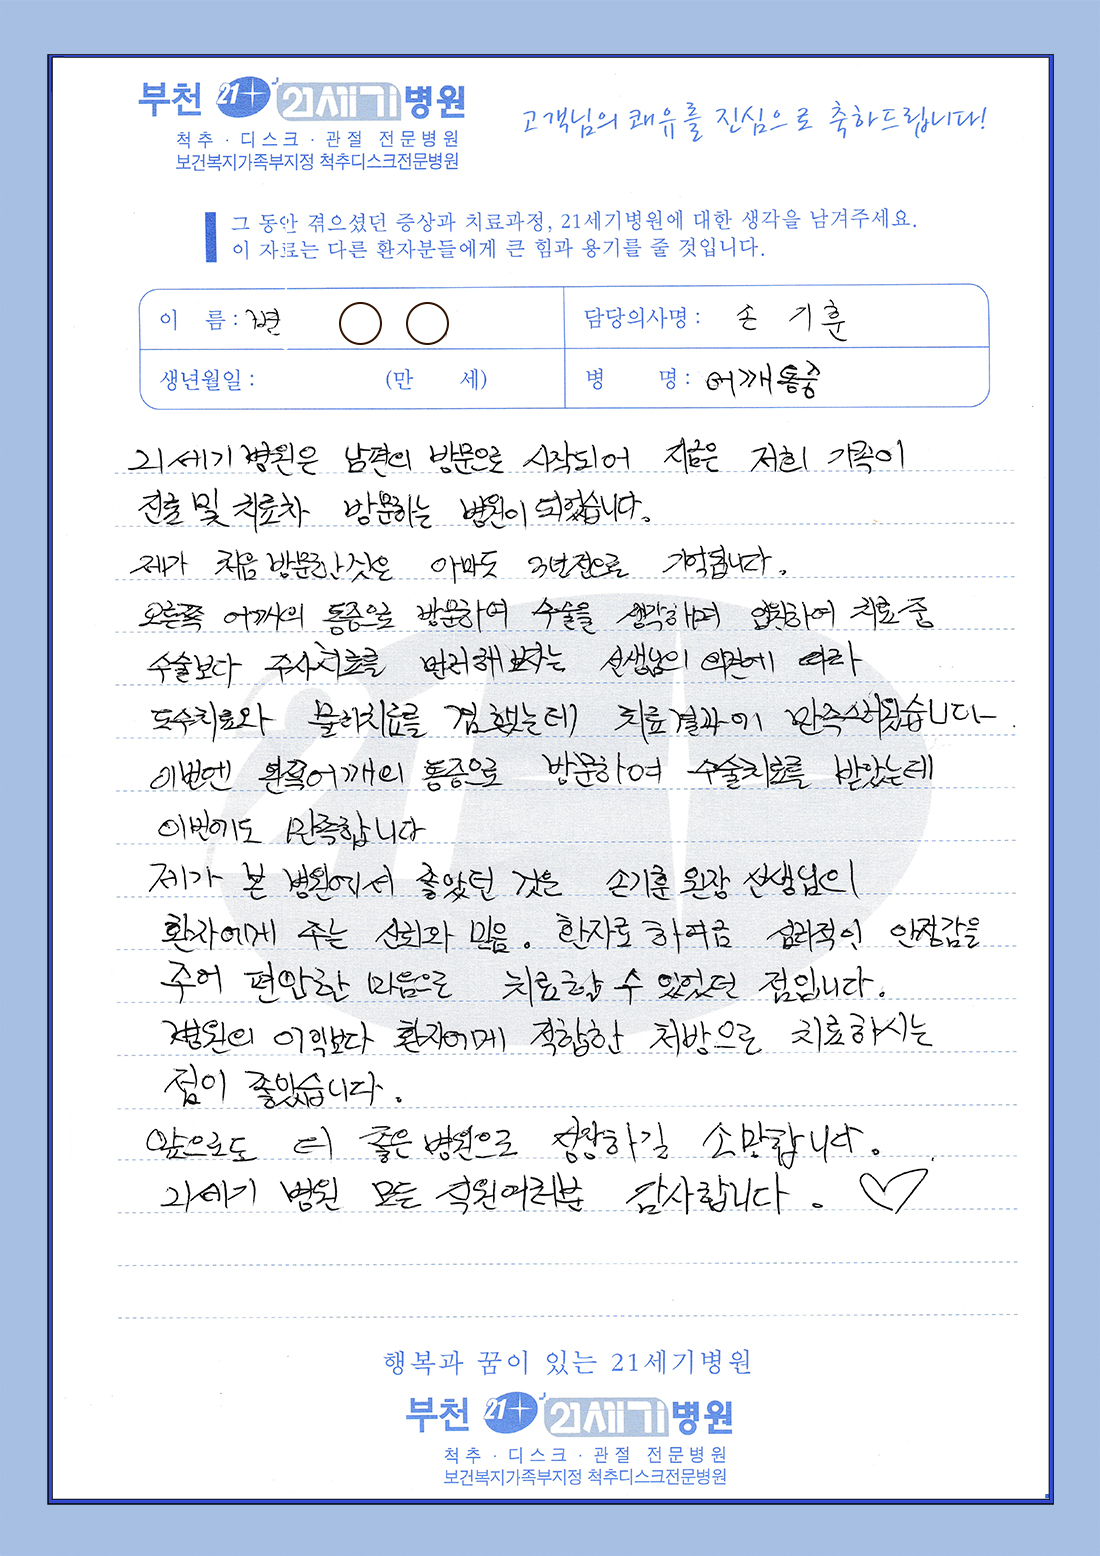 부천 21+ 21세기병원
척추 · 디스크 · 관절 전문병원
보건복지가족부지정 척추디스크전문병원
고객님의 쾌유를 진심으로 축하드립니다!
그 동안 겪으셨던 증상과 치료과정, 21세기병원에 대한 생각을 남겨주세요.
이 자료는 다른 환자분들에게 큰 힘과 용기를 줄 것입니다.
이 름 : 편 ○ ○ 담당의사명 : 손 기 훈
생년월일 : (만 세) 병 명 : 어깨통증
21세기 병원은 남편의 방문으로 시작되어 지금은 저희 가족이
진료 및 치료차 방문하는 병원이 되었습니다.
제가 처음 방문한 것은 아마도 3년전으로 기억됩니다.
오른쪽 어깨의 통증으로 방문하여 수술을 생각하며 입원하여 치료 중
수술보다 주사치료를 먼저해 보자는 선생님의 의견에 따라
도수치료와 물리치료를 겸했는데 치료결과에 만족스러웠습니다.
이번엔 왼쪽어깨의 통증으로 방문하여 수술치료를 받았는데
이번에도 만족합니다
제가 본 병원에서 좋았던 것은 손기훈 원장 선생님의
환자에게 주는 신뢰와 믿음. 환자로 하여금 심리적인 안정감을
주어 편안한 마음으로 치료할 수 있었던 점입니다.
병원의 이익보다 환자에게 적합한 처방으로 치료하시는
점이 좋았습니다.
앞으로도 더 좋은 병원으로 성장하길 소망합니다.
21세기 병원 모든 직원여러분 감사합니다. ♡
행복과 꿈이 있는 21세기병원
부천 21+ 21세기병원
척추 · 디스크 · 관절 전문병원
보건복지가족부지정 척추디스크전문병원